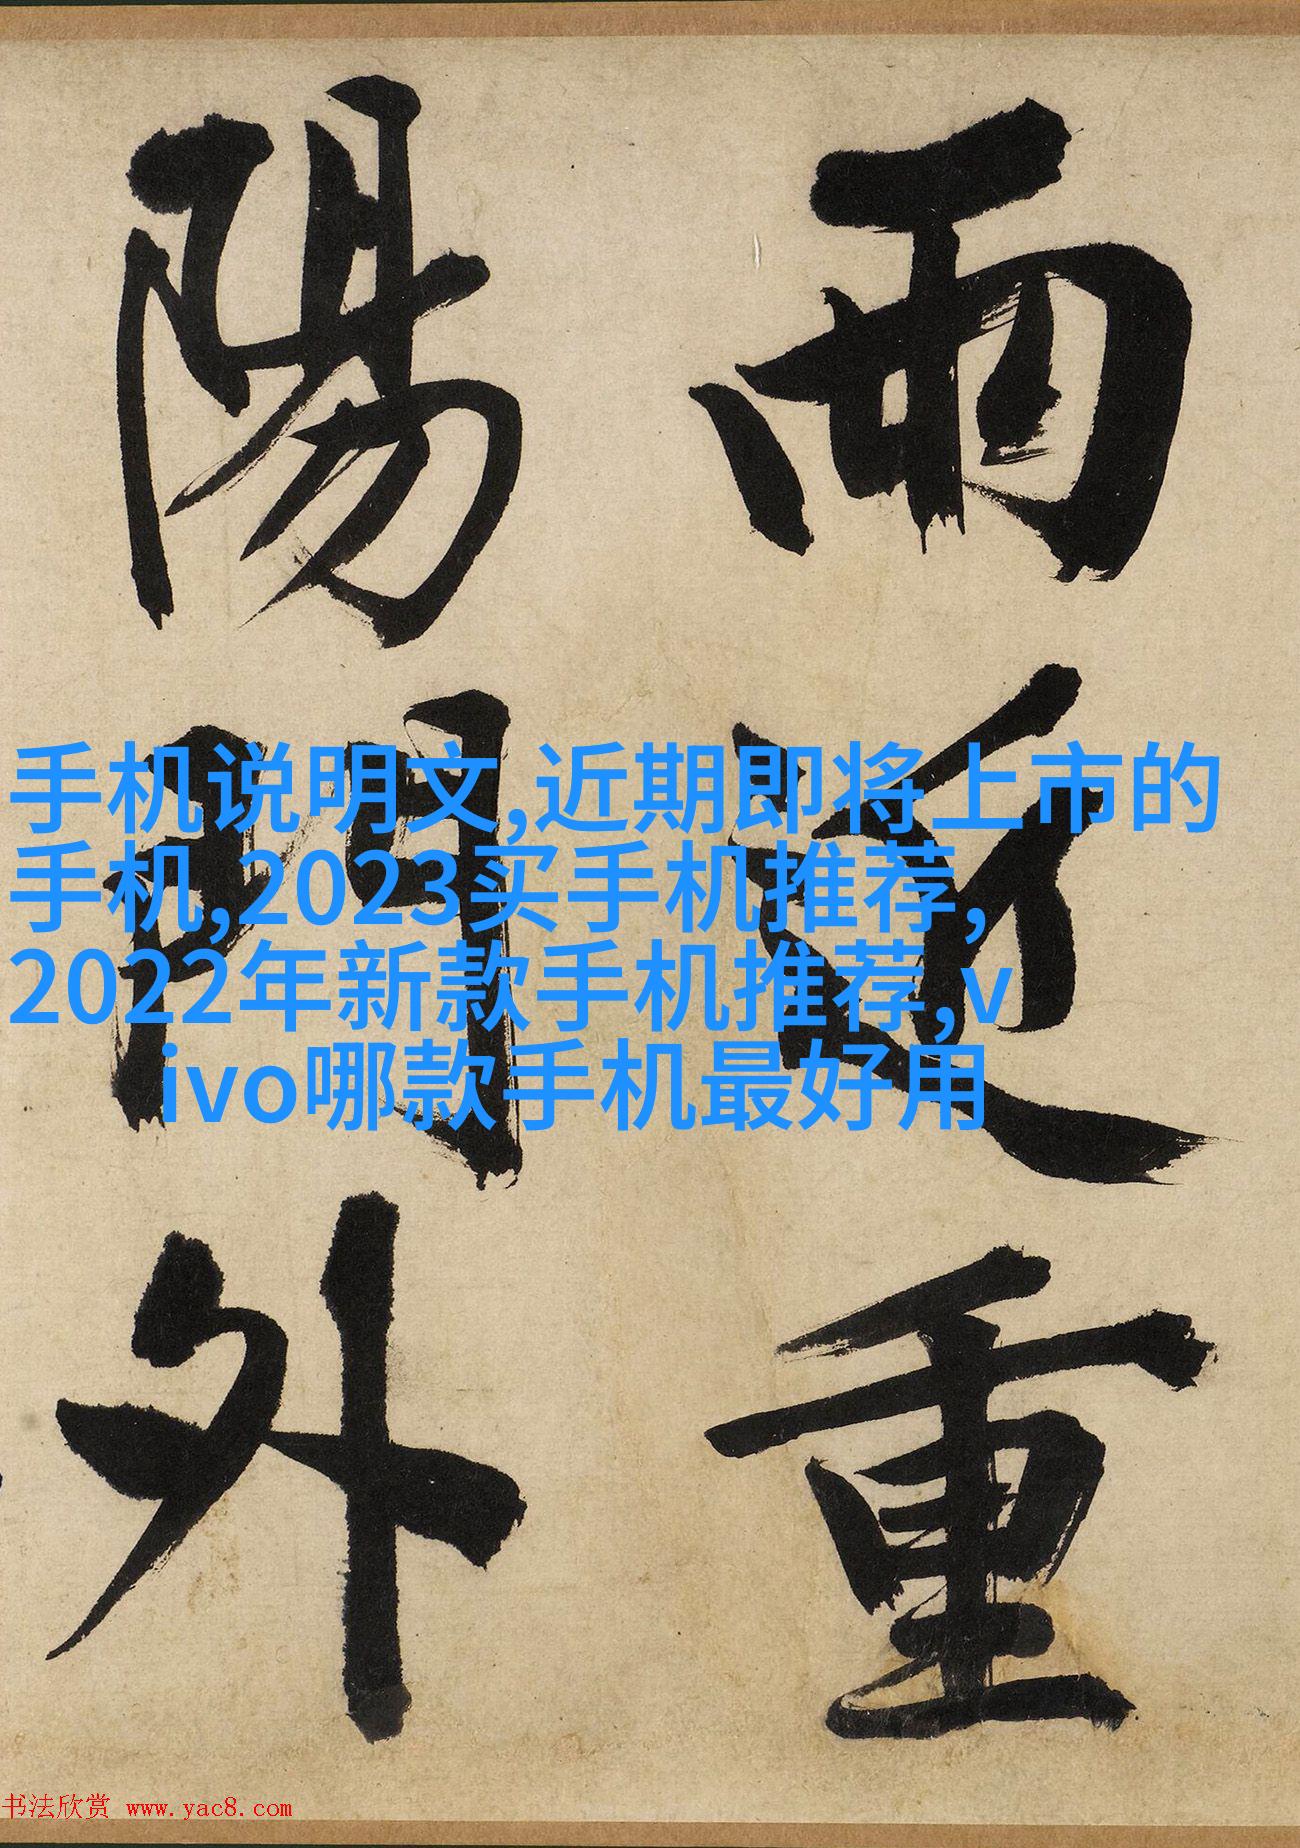 雨近重
陽門外
手机说明文,近期即将上市的
手机,2023买手机推荐,
2022年新款手机推荐,v
ivo哪款手机最好用
书法欣赏 www.yac8.com